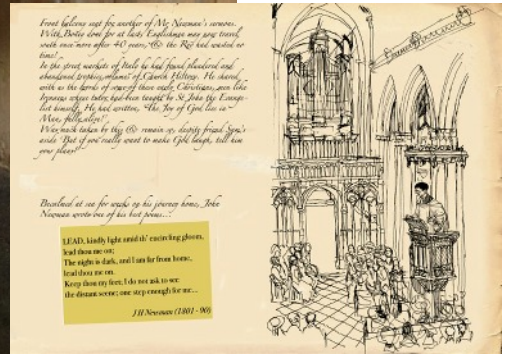 Front balcony seat for another of Mr Newman's sermons.
With Boney done for at last, Englishmen may now travel
south once more after 40 years, & the Rev had wasted no
time!
In the street markets of Italy he had found plundered and
abandoned trophies, volumes of Church History. He shared
with us the words of some of these early Christians, men like
Irenaeus whose tutor had been taught by St John the Evange-
list himself. He had written, 'The Joy of God lies in
Man, fully alive!'.
Was much taken by this & remain so, despite friend Sam's
aside 'But if you really want to make God laugh, tell him
your plans!'
Becalmed at sea for weeks on his journey home, John
Newman wrote one of his best poems...:
LEAD, kindly light amid th' encircling gloom,
lead thou me on;
The night is dark, and I am far from home,
lead thou me on.
Keep thou my feet; I do not ask to see
the distant scene; one step enough for me...
J H Newman (1801 - 90)